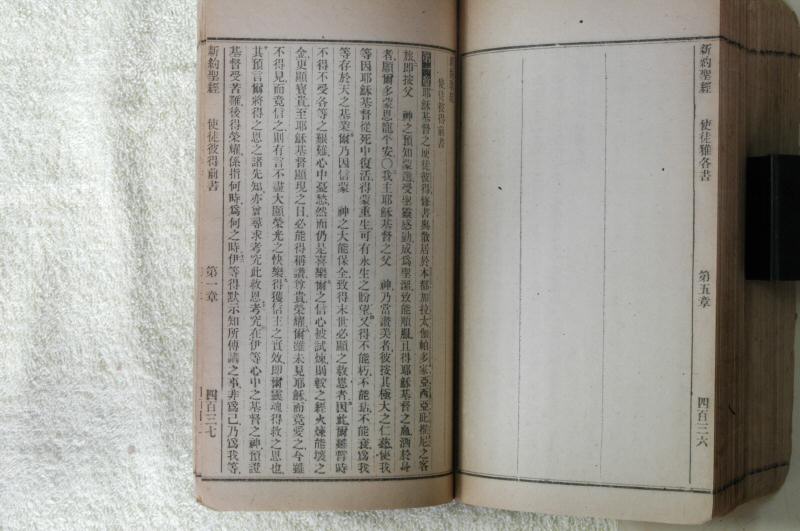 新約聖經 使徒雅各書 第五章 四百三六
使徒彼得前書
第一章耶穌基督之使徒彼得修書與散居於本都加拉太伽帕多家亞西亞庇推尼之客
旅即按父 神之預知蒙選受聖靈感動成爲聖潔致能順服且得耶穌基督之血洒於身
者願爾多蒙恩寵平安〇我主耶穌基督之父 神乃當讚美者彼按其極大之仁慈使我
等因耶穌基督從死中復活得蒙重生可有永生之盼望又得不能朽不能玷不能衰爲我
等存於天之基業爾乃因信蒙 神之大能保全致得末世必顯之救恩者因此爾雖暫時
不得不受各等之艱難心中憂愁然而仍是喜樂爾之信心被試煉則較之經火煉能壞之
金更顯寶貴至耶穌基督顯現之日必能得稱讚尊貴榮耀爾雖未見耶穌而竟愛之今雖
不得見而竟信之則有言不盡大顯榮光之快樂得獲信主之實效即爾靈魂得救之恩也
其預言爾將得之恩之諸先知亦曾尋求考究此救恩考究在伊等心中之基督之神預證
基督受苦難後得榮耀係指何時爲何之時伊等得默示知所傳講之事非爲己乃爲我等
新約聖經 使徒彼得前書 第一章 四百三七